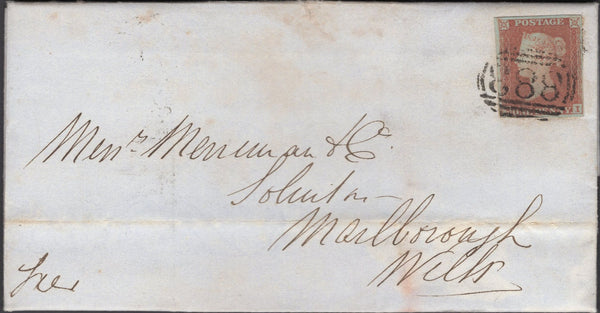 POSTAGE
888
Messrs Merriman & Co
Solicitors
Marlborough
Wilts